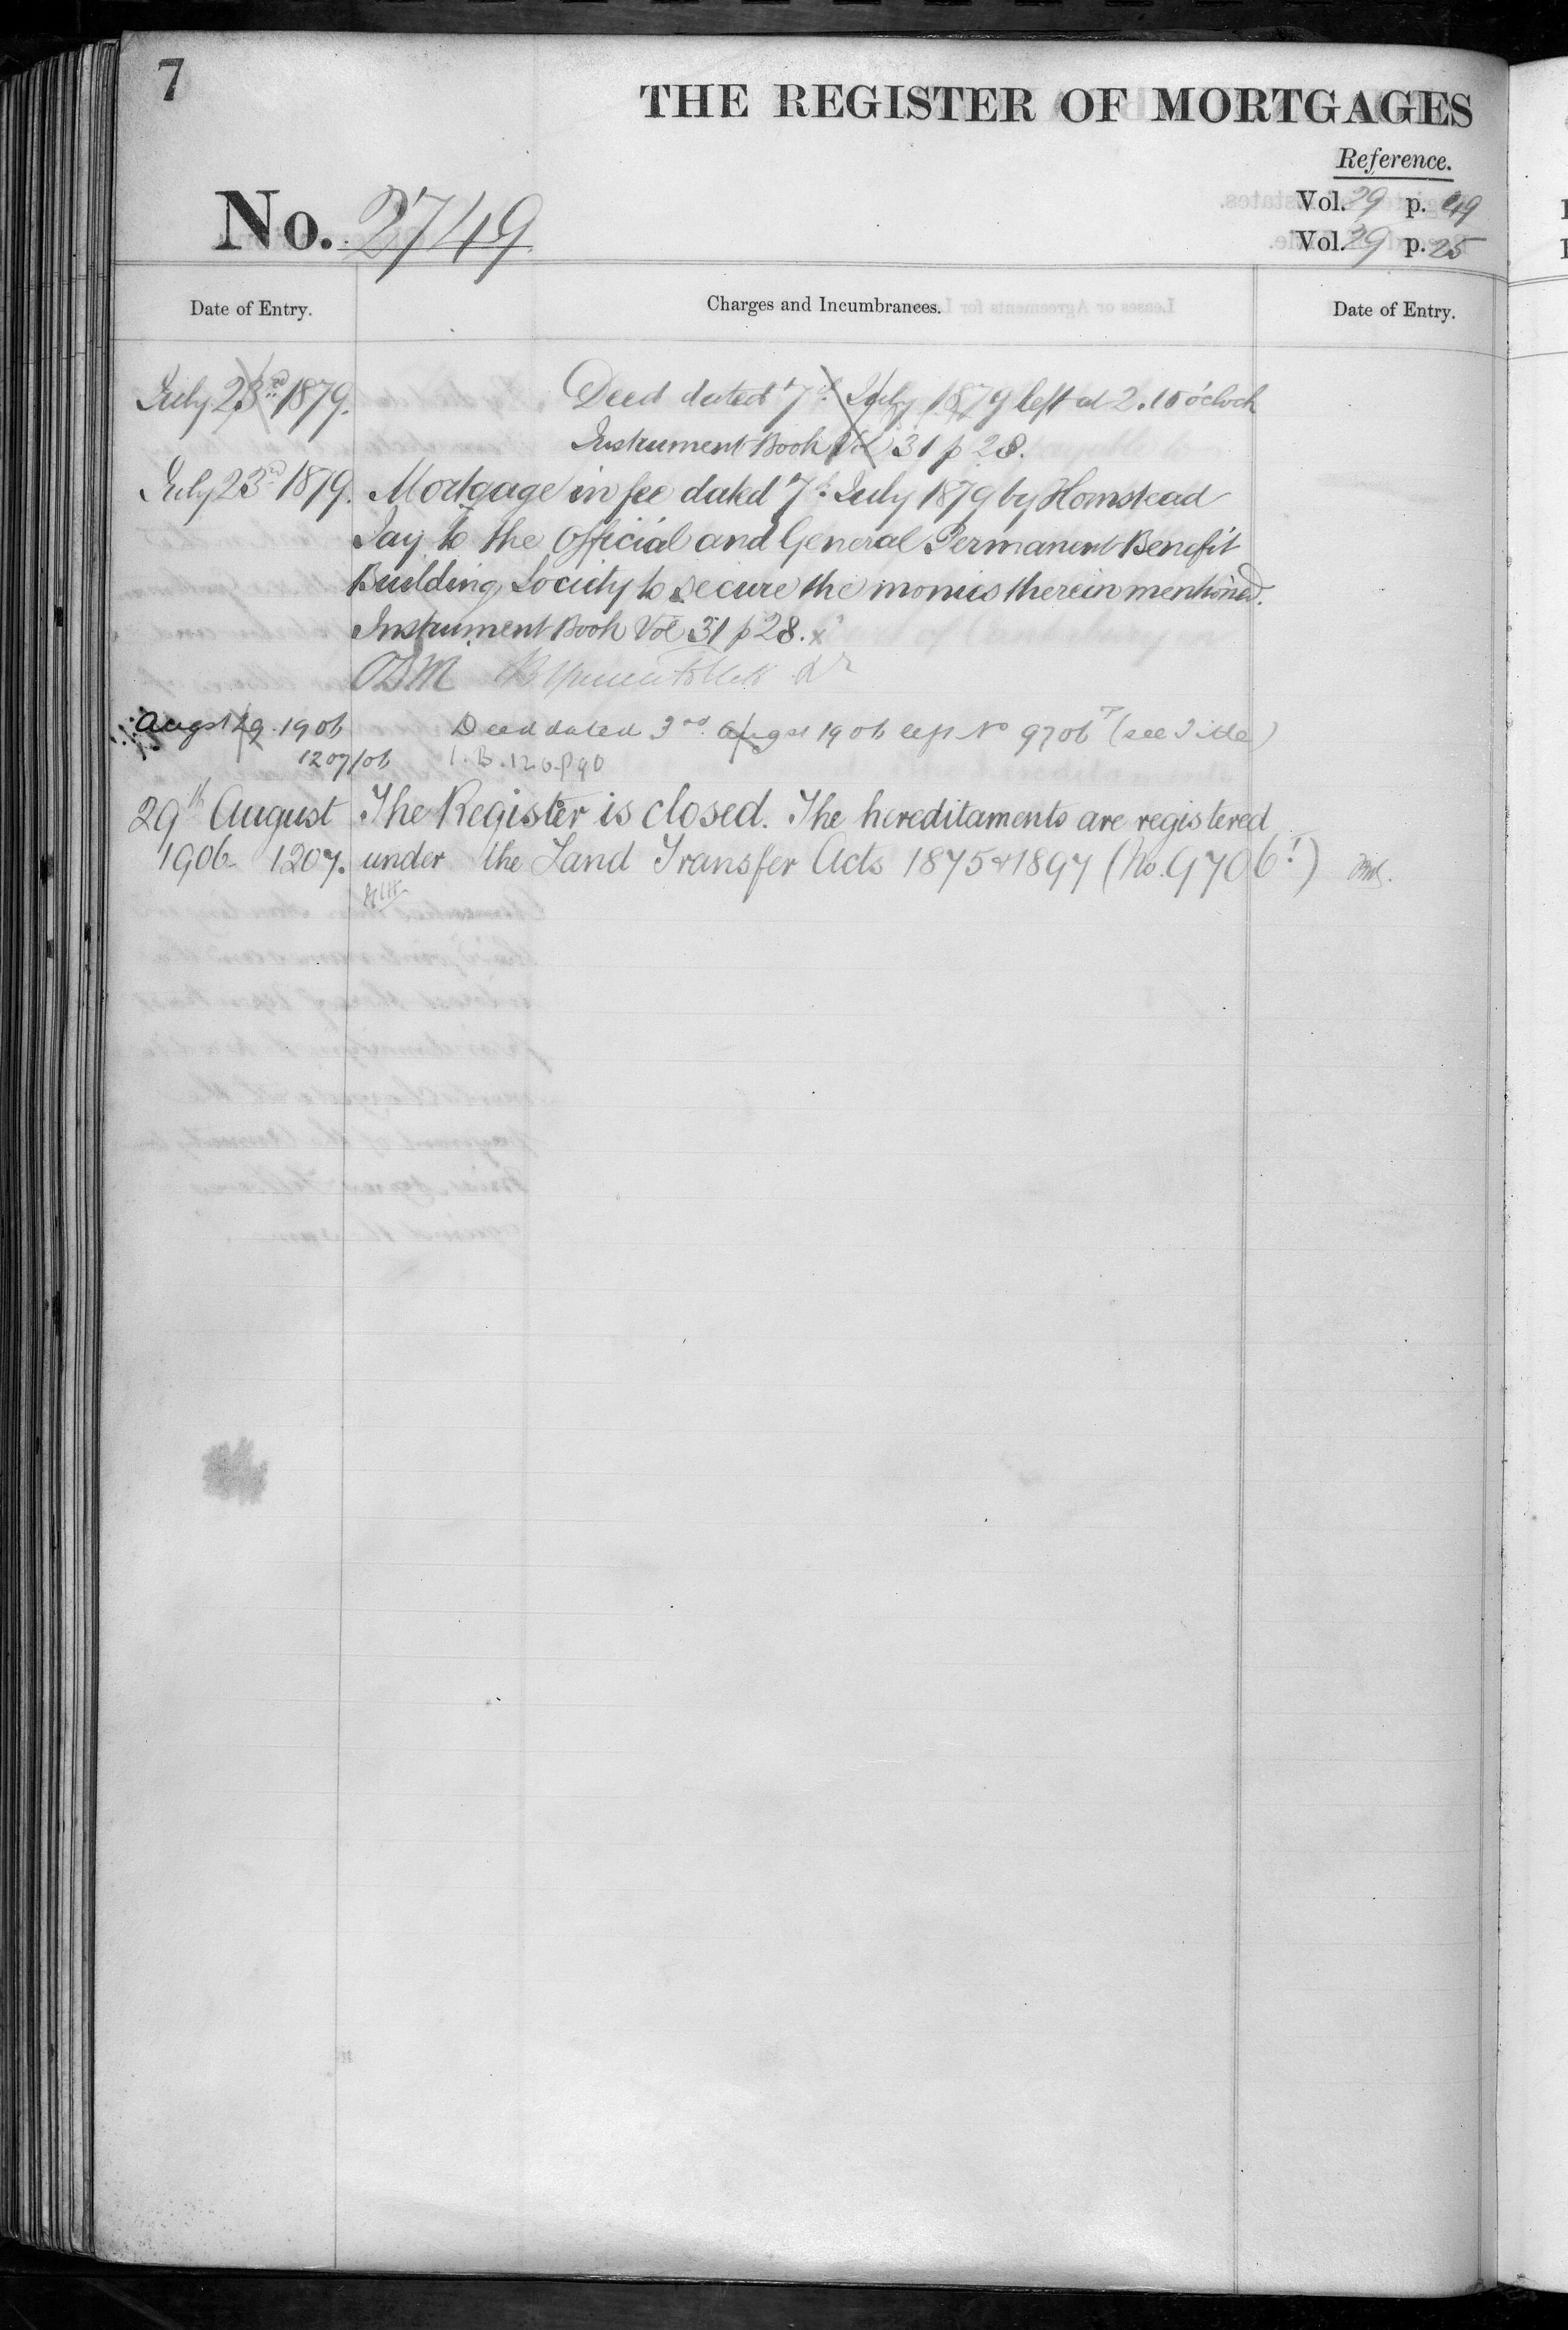 7
THE REGISTER OF MORTGAGES
Reference.
Vol. 29 p. 49
No. 2749
Vol. 29 p. 25
Date of Entry.
Charges and Incumbrances.
Date of Entry.
July 23rd 1879. Deed dated 7th July 1879 left at 2.10 o'clock
Instrument Book Vol 31 p 28.
July 23rd 1879. Mortgage in fee dated 7th July 1879 by Homstead
Jay to the Official and General Permanent Benefit
Building Society to secure the monies therein mentioned.
Instrument Book Vol 31 p 28. x
ODM
Augst 29 1906 Deed dated 3rd Augst 1906 left No 9706 (see Title)
1207/06 I.B. 126. p 90
29th August The Register is closed. The hereditaments are registered
1906 1207. under the Land Transfer Acts 1875 & 1897 (No. 9706!)